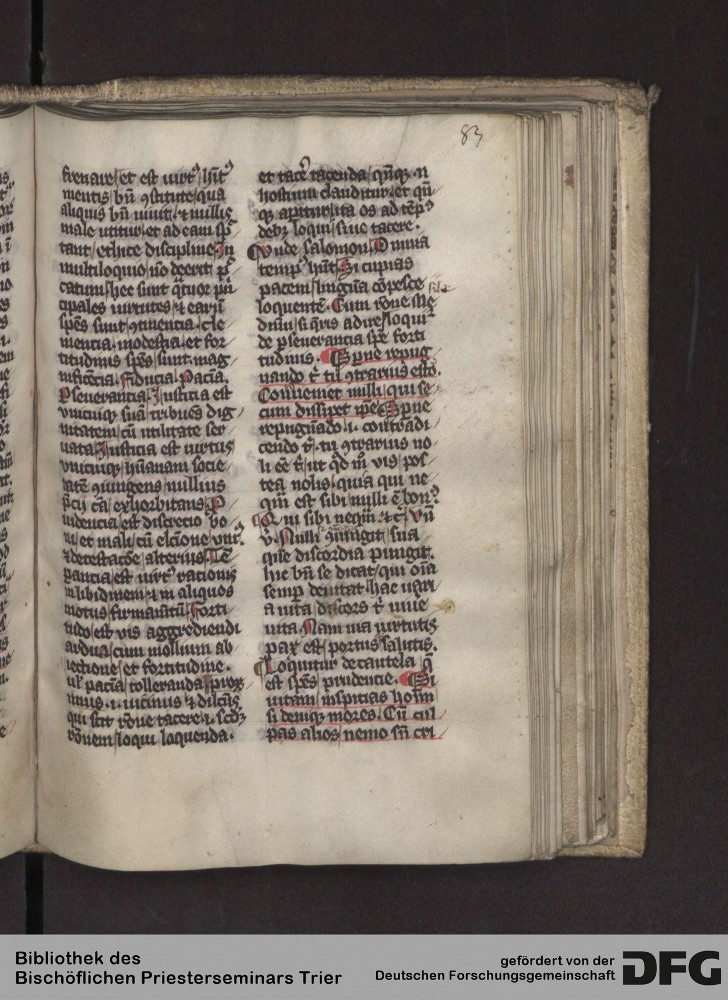 83
frenare et est uirtꝰ hitꝰ
mentis bn̄ ꝯstitute qua
aliquis bn̄ uiuit ⁊ nullus
male utitur et ad eam sp̄
tant ethice discipline In
multiloquio nō deerit p̄
catum hec sunt qͣtuor p̄n
cipales uirtutes ⁊ earū
spēs sunt ꝯtinentia cle
mentia modestia et for
titudinis spēs sunt mag
nificētia fiducia Pacīa
Pseuerantia Iusticia est
vnicuiqꝫ suā tribuēs dig
nitatem cū utilitate ser
uata Iusticia est uirtus
vnicuiqꝫ hūanam socie
tatē ꝯiungens nullius
cā exhorbitans P
rudencia est discretio bo
ni et mali cū elcione vniꝰ
⁊ detestacōe alterius Tē
pancia est uirtꝰ rationis
in libidinem ⁊ in aliquos
motus Forti
tudo est vis aggrediendi
ardua cum mollium ab
iectione et fortitudine
ul pacīa tolleranda prox
imus .i. uicinus
qui scit rōne tacere .i. scdꝫ
rōnem loqui loquenda
et tacē tacenda
hostium clauditur et qn̄
qꝫ apitur ita os ad tēpꝰ
debꝫ loqui siue tacere
Vnde salomon Omnia
tempꝰ hn̄t Si cupias
pacem linguā cōpesce
loquentē Cum rōne
si qͥs adu loqui
de pseuerantia spē forti
tudinis Spne repug
nando tͥ tu ꝯtrarius esto
Conueniet nulli qui se
cum dissipet ipē Spne
repugnādo .i. contradi
cendo tͥ tu ꝯtrarius no
li eē tͥ ut qd m̊ vis pos
tea nolis quia qui ne
qm̄ est sibi nulli ē bonꝰ
Qui sibi neqm̄ ⁊c̄ Vn̄
v. Nulli ꝯiungit sua
quē discordia pungit
hic bn̄ se dicat qui oīa
semp deuitat hac
a uita discors tͥ uiue
uita Nam uia uirtutis
pax est portus salutis
Loquitur de cautela q̄
est spēs prudencie Si
uitam inspicias hoīm
si deniqꝫ mores Cū cul
pas alios nemo sn̄ cri
Bibliothek des
Bischöflichen Priesterseminars Trier
gefördert von der
Deutschen Forschungsgemeinschaft
DFG